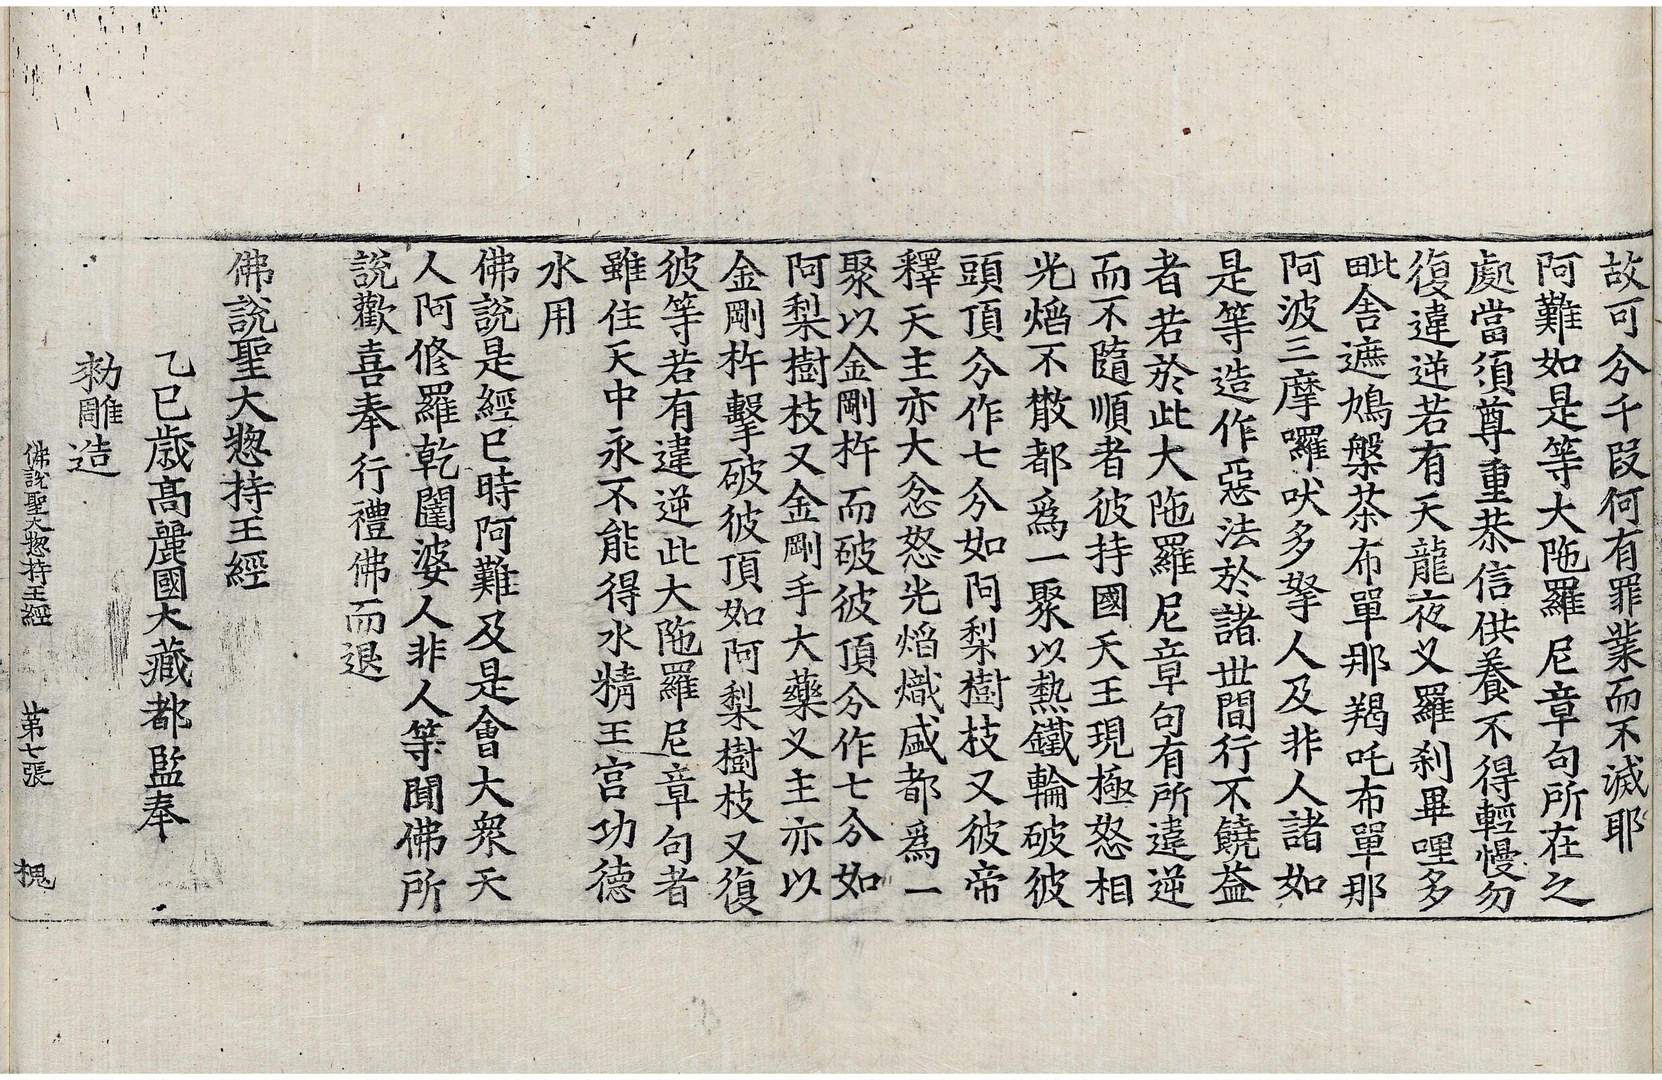 故可分千段何有罪業而不滅耶
阿難如是等大陁羅尼章句所在之
處當須尊重恭信供養不得輕慢勿
復違逆若有天龍夜叉羅刹畢哩多
毗舍遮鳩槃茶布單那羯吒布單那
阿波三摩囉吠多拏人及非人諸如
是等造作惡法於諸世間行不饒益
者若於此大陁羅尼章句有所違逆
而不隨順者彼持國天王現極怒相
光熖不散都爲一聚以熱鐵輪破彼
頭頂分作七分如阿梨樹枝又彼帝
釋天主亦大忿怒光熖熾盛都爲一
聚以金剛杵而破彼頂分作七分如
阿梨樹枝又金剛手大藥叉主亦以
金剛杵擊破彼頂如阿梨樹枝又復
彼等若有違逆此大陁羅尼章句者
雖住天中永不能得水精王宮功德
水用
佛說是經已時阿難及是會大衆天
人阿修羅乾闥婆人非人等聞佛所
說歡喜奉行禮佛而退
佛說聖大惣持王經
乙巳歲高麗國大藏都監奉
勑雕造
佛說聖大惣持王經 第七張 槐